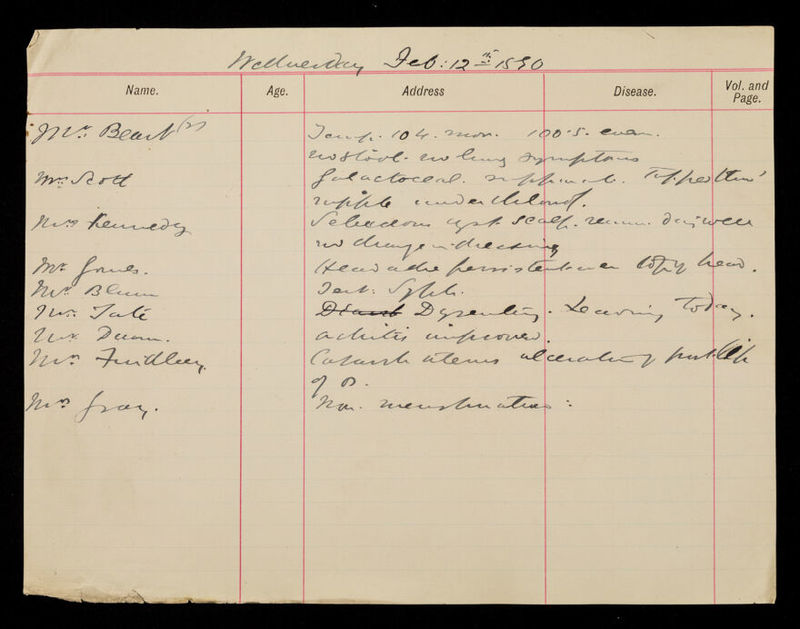 Wednesday Feb: 12th 1890
Name. Age. Address Disease. Vol. and Page.
Mrs Beart (2) Temp. 104. morn. 100.5. even.
no stool. no lung symptoms
Mrs Scott Galactocele. Tapped thro'
nipple under chlorof.
Mrs Kennedy Sebaceous cyst scalp. doing well
no change in dressing
Mr Jones. Headache persistent over top of head.
Mr Blum Tert. Syph.
Mrs Tate Dysentery. Leaving Today.
improved.
Mrs Findley. Catarrh uterus ulceration of post lip
of o.
Mrs Gray. Non. menstruation: